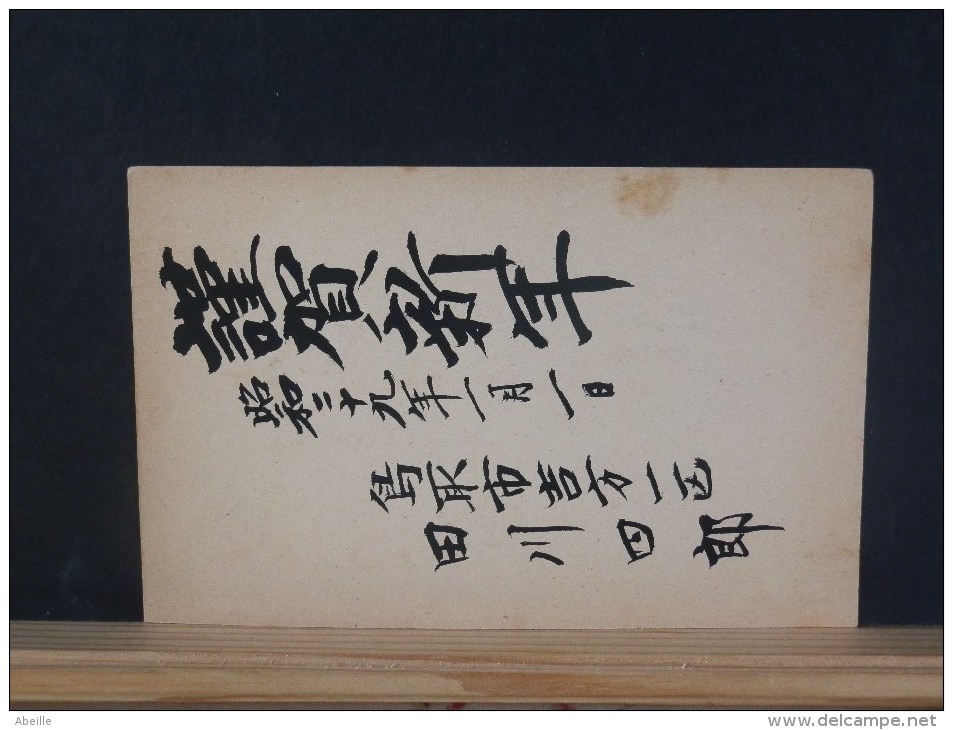 謹賀新年
昭和二十九年一月一日
鳥取市吉方一区
田川四郎
Abeille
www.delcampe.net